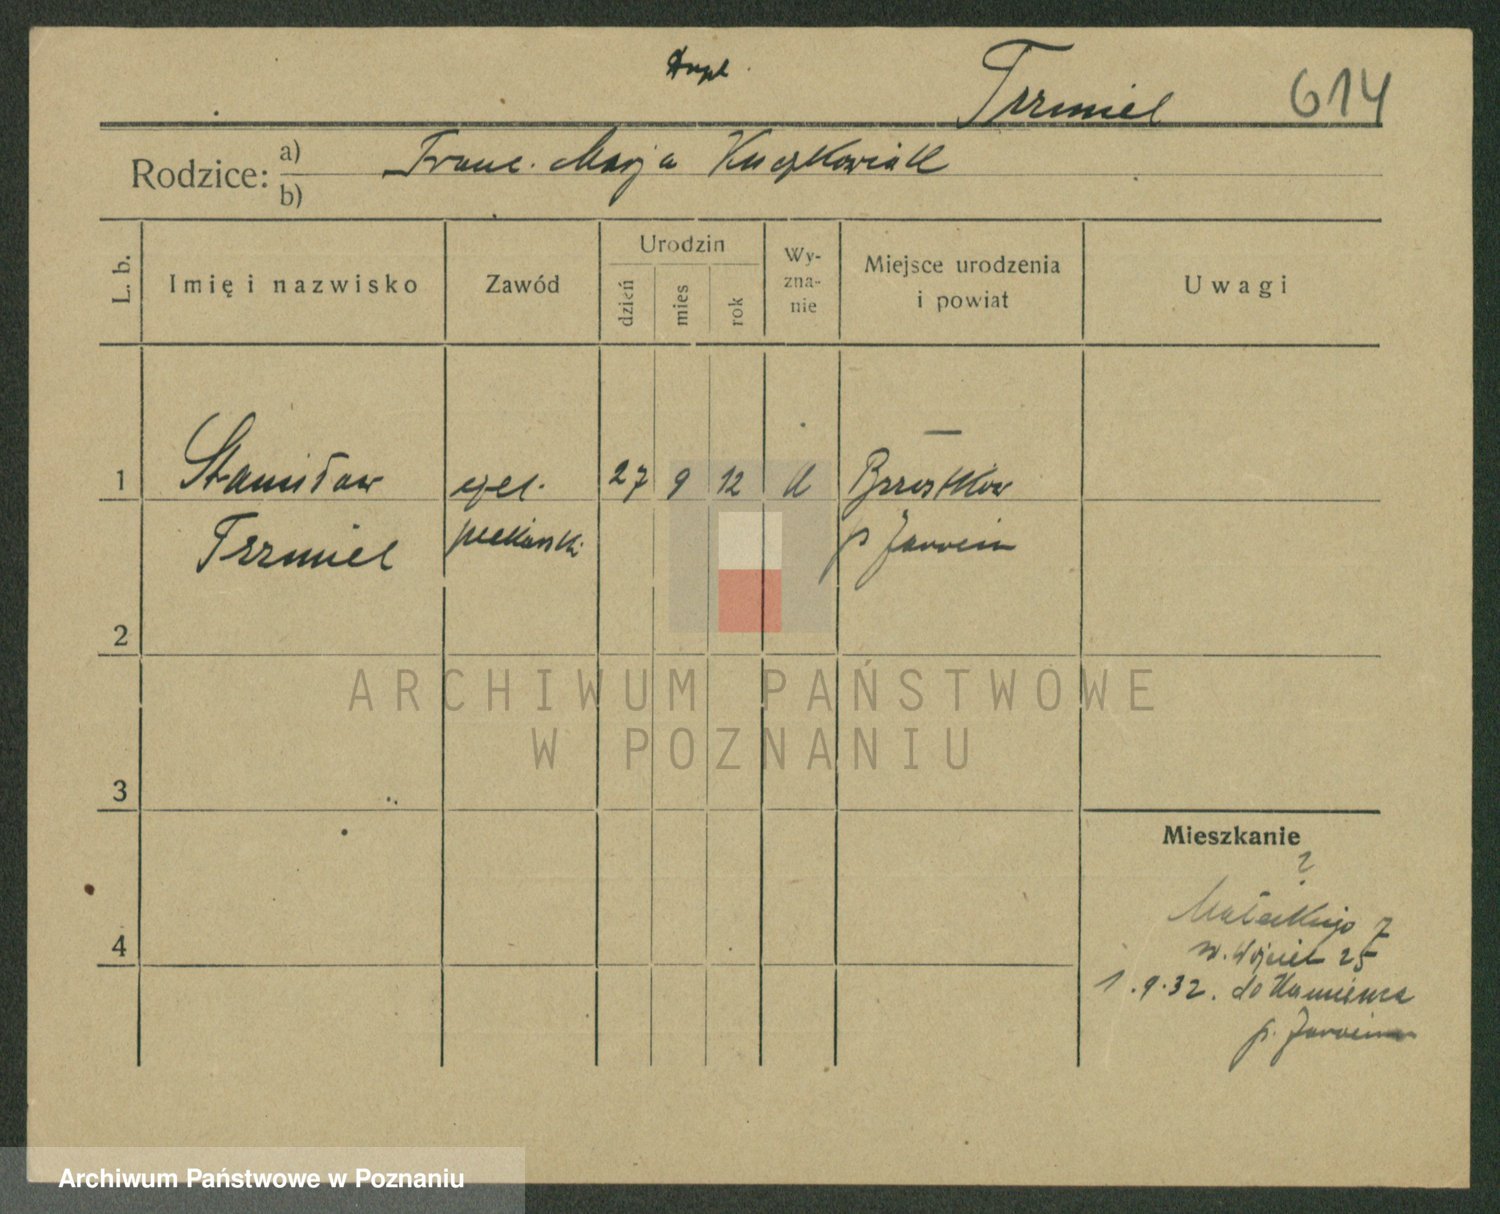 Trzmiel 614
Rodzice: a) Franc. Marja Kuczkowiak
b)
L. b. Imię i nazwisko Zawód Urodzin dzień mies rok Wy-zna-nie Miejsce urodzenia i powiat Uwagi
1 Stanisław czel. 27 9 12 k Brzostków
Trzmiel piekarski p Jarocin
2
ARCHIWUM PAŃSTWOWE
W POZNANIU
3
Mieszkanie
?
Małeckiego 7
4 25
1.9.32. do Kamieńca
p. Jarocin
Archiwum Państwowe w Poznaniu